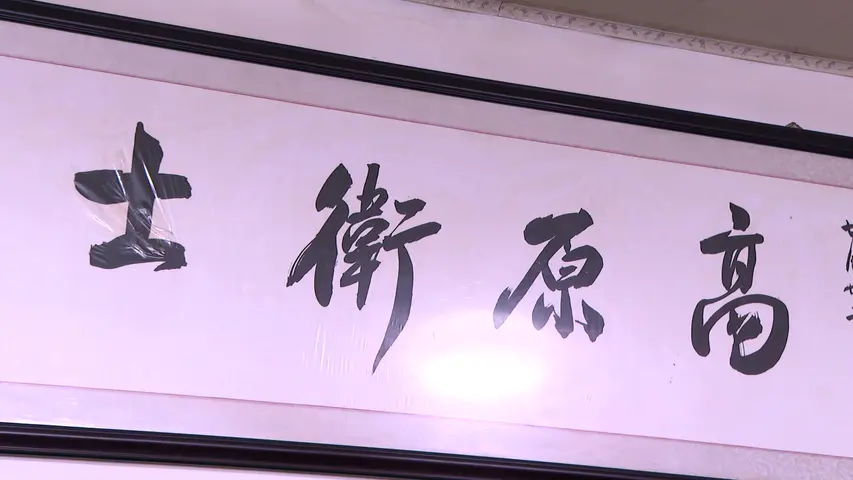 高原衛士